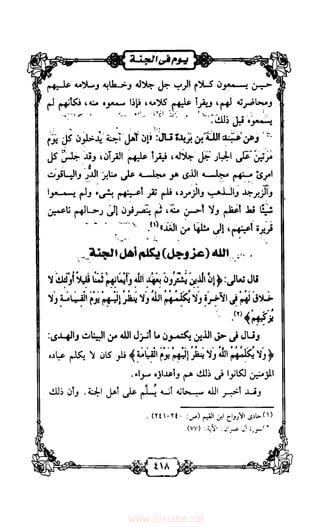 يوم فى الجنة
حين يسمعون كلام الرب جل جلاله وخطابه وسلامه عليهم
ومحاضرته لهم، ويقرأ عليهم كلامه، فإذا سمعوه منه، فكأنهم لم
يسمعوه قبل ذلك.
وعن عبد الله بن بريدة قال: فإن أهل الجنة يدخلون كل يوم
مرتين على الجبار جل جلاله، فيقرأ عليهم القرآن، وقد جلس كل
امرئ منهم مجلسه الذى هو مجلسه على منابر الدُّر والياقوت
والزبرجد والذهب والزمرد، فلم تقر أعينهم بشىء ولم يسمعوا
شيئًا قط أعظم ولا أحسن منه، ثم ينصرفون إلى رحالهم ناعمين
قريرة أعينهم، إلى مثلها من الغد»(١).
الله (عز وجل) يكلم أهل الجنة
قال تعالى: ﴿إن الذين يشترون بعهد الله وأيمانهم ثمنًا قليلاً أولئك لا
خلاق لهم في الآخرة ولا يكلمهم الله ولا ينظر إليهم يوم القيامة ولا
يزكيهم﴾(٢).
وقال فى حق الذين يكتمون ما أنزل الله من البينات والهدى:
﴿ولا يكلمهم الله ولا ينظر إليهم يوم القيامة﴾ فلو كان لا يكلم عباده
المؤمنين لكانوا فى ذلك هم وأعداؤه سواء.
وقد أخبر الله سبحانه أنه يُسلِّم على أهل الجنة. وأن ذلك
(١) حادى الأرواح ابن القيم (ص: ٢٤٠-٢٤١).
سورة آل عمران: الآية: (٧٧)
٤١٨